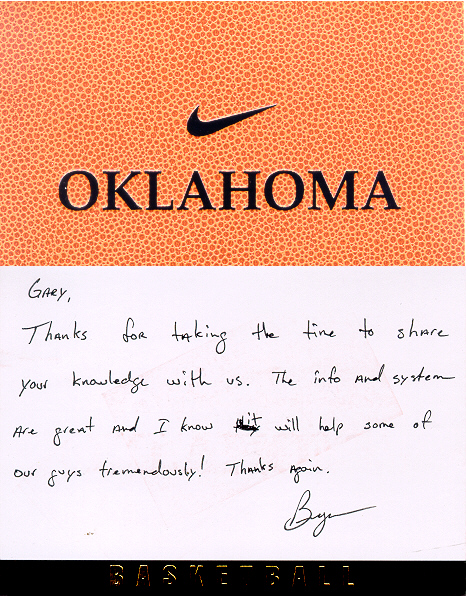 OKLAHOMA
GARY,
Thanks for taking the time to share
your knowledge with us. The info and system
are great and I know it will help some of
our guys tremendously! Thanks again.
BASKETBALL